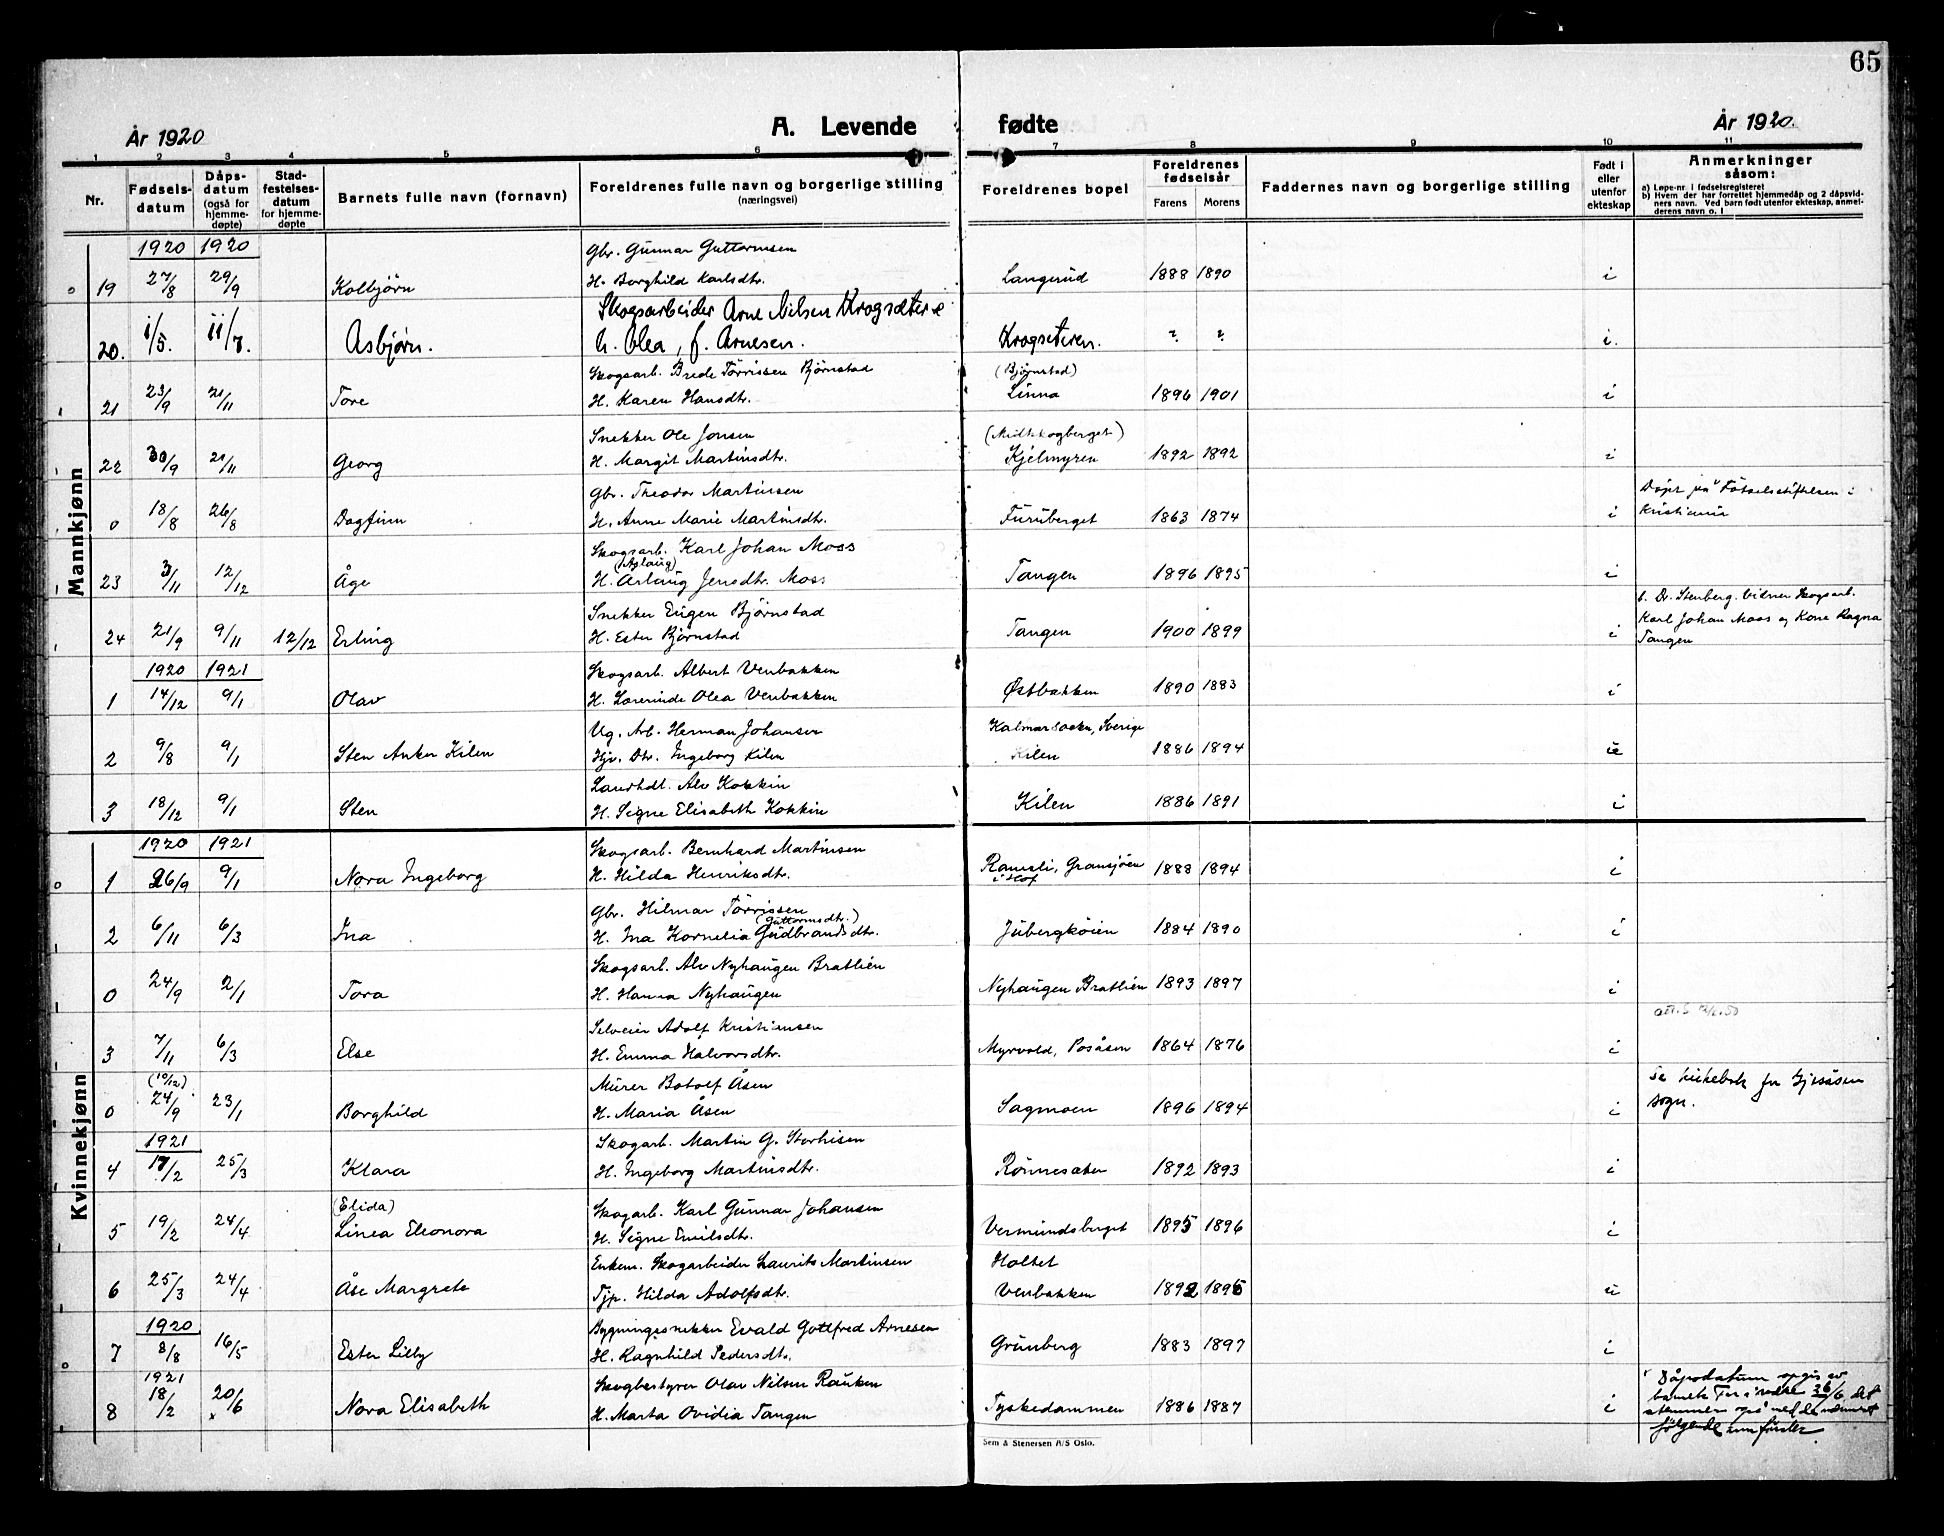 65
År 1920
A. Levende fødte
År 1920.
1 2 3 4 5 6 7 8 9 10 11
Nr.
Fødselsdatum
Dåpsdatum (også for hjemmedøpte)
Stadfestelsesdatum for hjemmedøpte
Barnets fulle navn (fornavn)
Foreldrenes fulle navn og borgerlige stilling (næringsvei)
Foreldrenes bopel
Foreldrenes fødselsår
Farens Morens
Faddernes navn og borgerlige stilling
Født i eller utenfor ekteskap
Anmerkninger såsom:
a) Løpe-nr. i fødselsregisteret
b) Hvem der har forrettet hjemmedåp og 2 dåpsvidners navn. Ved barn født utenfor ekteskap, anmelderens navn o. l
Mannkjønn
1920 1920
Gbr. Gunnar Guttormsen
19 27/8 29/9 Kolbjørn H. Borghild Karlsdtr. Langrud 1888 1890 i
Skogsarbeider Arne Nilsen Krogsæter &
20. 1/5. 11/7. Asbjørn. h. Olea, f. Arnesen. Krogseteren. ? ? i.
Skogsarb. Brede Tørrissen Bjørnstad (Bjørnstad)
21 23/9 21/11 Tore H. Karen Hansdtr. Linna 1896 1901 i
Snekker Ole Jonsen (Midtskogberget)
22 30/9 21/11 Georg H. Margit Martinsdtr. Kjelmyren 1892 1892 i
Gbr. Theodor Martinsen Døpt på Fødselsstiftelsen i
0 18/8 26/8 Dagfinn H. Anne Marie Martinsdtr. Furuberget 1863 1874 i Kristiania
Skogsarb. Karl Johan Moss
(Aslaug)
23 3/11 12/12 Åge H. Aslaug Jensdtr. Moss Tangen 1896 1895 i
Snekker Eugen Bjørnstad b. Dr. Stenberg. Vidner Skogsarb.
24 21/9 9/11 12/12 Erling H. Ester Bjørnstad Tangen 1900 1899 i Karl Johan Moss og Kone Ragna
Tangen
1920 1921
Skogsarb. Albert Venbakken
1 14/12 9/1 Olav H. Lorerinde Olea Venbakken Østbakken 1890 1883 i
Ug. Arb. Herman Johansen Sverige
2 9/8 9/1 Sten Anker Kilen Hjv. Dtr. Ingeborg Kilen Kilen 1886 1894 u
Landhdl. Alv Kokkin
3 18/12 9/1 Sten H. Signe Elisabeth Kokkin Kilen 1886 1891 i
Kvinnekjønn
1920 1921
Skogsarb. Bernhard Martinsen
1 26/9 9/1 Nora Ingeborg H. Hilda Henriksdtr. Ramsli, Gransjøen 1888 1894 i
i Hof
Gbr. Hilmar Tørrissen
(Guttormsdtr.)
2 6/11 6/3 Ina H. Ina Kornelia Gudbrandsdtr. Jubergkøien 1884 1890 i
Skogsarb. Alv Nyhaugen Bratlien
0 24/9 2/1 Tora H. Hanna Nyhaugen Nyhaugen Bratlien 1893 1897 i
Selveier Adolf Kristiansen
3 7/11 6/3 Else H. Emma Halvorsdtr. Myrvold, Posåsen 1864 1876 i
(10/12) Murer Botolf Åsen Se kirkebok for Gjesåsen
0 24/9 23/1 Borghild H. Maria Åsen Sagmoen 1896 1894 i sogn.
1921
Skogarb. Martin G. Storhisen
4 17/2 25/3 Klara H. Ingeborg Martinsdtr. Rønnesæter 1892 1893 i
(Elida) Skogarb. Karl Gunnar Johansen
5 19/2 24/4 Linea Eleonora H. Signe Emilsdtr. Vermundsberget 1895 1896 i
Enkem. Skogarbeider Laurits Martinsen Holtet
6 25/3 24/4 Åse Margrete Tjp. Hilda Adolfsdtr. Venbakken 1892 1895 u
1920
Bygningssnekker Evald Gottfred Arnesen
7 8/8 16/5 Ester Lilly H. Ragnhild Pedersdtr. Grünberg 1883 1897 i
1921
Skogbestyrer Olav Nilsen Rauken
8 18/2 20/6 x Nora Elisabeth H. Marta Ovidia Tangen Tyskedammen 1886 1887 i
Dåpsdatum opgis av
26/6
følgende
Sem & Stenersen A/S Oslo.